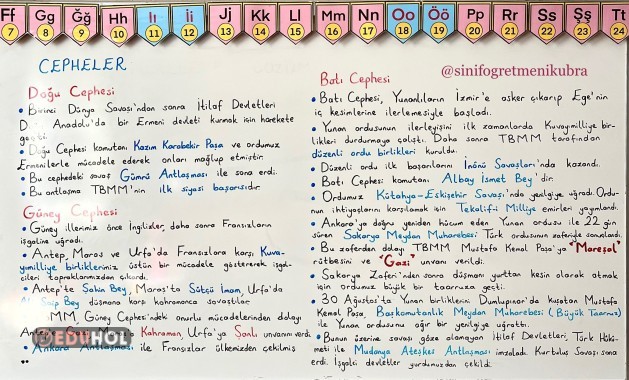 Ff Gg Ğğ Hh Iı İi Jj Kk Ll Mm Nn Oo Öö Pp Rr Ss Şş Tt
7 8 9 10 11 12 13 14 15 16 17 18 19 20 21 22 23 24
CEPHELER
Doğu Cephesi
• Birinci Dünya Savaşı'ndan sonra İtilaf Devletleri
D. Anadolu'da bir Ermeni devleti kurmak için harekete
geçti.
• Doğu Cephesi komutanı Kazım Karabekir Paşa ve ordumuz
Ermenilerle mücadele ederek onları mağlup etmiştir
• Bu cephedeki savaş Gümrü Antlaşması ile sona erdi.
• Bu antlaşma TBMM'nin ilk siyasi başarısıdır.
Güney Cephesi
• Güney illerimiz önce İngilizler, daha sonra Fransızların
işgaline uğradı.
• Antep, Maraş ve Urfa'da Fransızlara karşı Kuva-
yımilliye birliklerimiz üstün bir mücadele göstererek işgal-
cileri topraklarımızdan çıkardı.
• Antep'te Şahin Bey, Maraş'ta Sütçü İmam, Urfa'da
Ali Saip Bey düşmana karşı kahramanca savaştılar
MM, Güney Cephesi'ndeki onurlu mücadelerinden dolayı
Kahraman, Urfa'ya Şanlı unvanını verdi.
EDUHOL
• Ankara Antlaşması ile Fransızlar ülkemizden çekilmiş
Batı Cephesi
@sinifogretmenikubra
• Batı Cephesi, Yunanlıların İzmir'e asker çıkarıp Ege'nin
iç kesimlerine ilerlemesiyle başladı.
• Yunan ordusunun ilerleyişini ilk zamanlarda Kuvayımilliye bir-
likleri durdurmaya çalıştı. Daha sonra TBMM tarafından
düzenli ordu birlikleri kuruldu.
• Düzenli ordu ilk başarılarını İnönü Savaşları'nda kazandı.
• Batı Cephesi komutanı Albay İsmet Bey'dir.
• Ordumuz Kütahya-Eskişehir Savaşı'nda yenilgiye uğradı. Ordu-
nun ihtiyaçlarını karşılamak için Tekalifi Milliye emirleri yayımlandı.
• Ankara'ya doğru yeniden hücum eden Yunan ordusu ile 22 gün
süren Sakarya Meydan Muharebesi Türk ordusunun zaferiyle sonuçlandı.
• Bu zaferden dolayı TBMM Mustafa Kemal Paşa'ya "Mareşal"
rütbesini ve "Gazi" unvanı verildi.
• Sakarya Zaferi'nden sonra düşmanı yurttan kesin olarak atmak
için ordumuz büyük bir taarruza geçti.
• 30 Ağustos'ta Yunan birliklerini Dumlupınar'da kuşatan Mustafa
Kemal Paşa, Başkomutanlık Meydan Muharebesi (Büyük Taarruz)
ile Yunan ordusunu ağır bir yenilgiye uğrattı.
• Bunun üzerine savaşı göze alamayan İtilaf Devletleri, Türk Hükü-
meti ile Mudanya Ateşkes Antlaşması imzaladı. Kurtuluş Savaşı sona
erdi. İşgalci devletler yurdumuzdan çekildi.